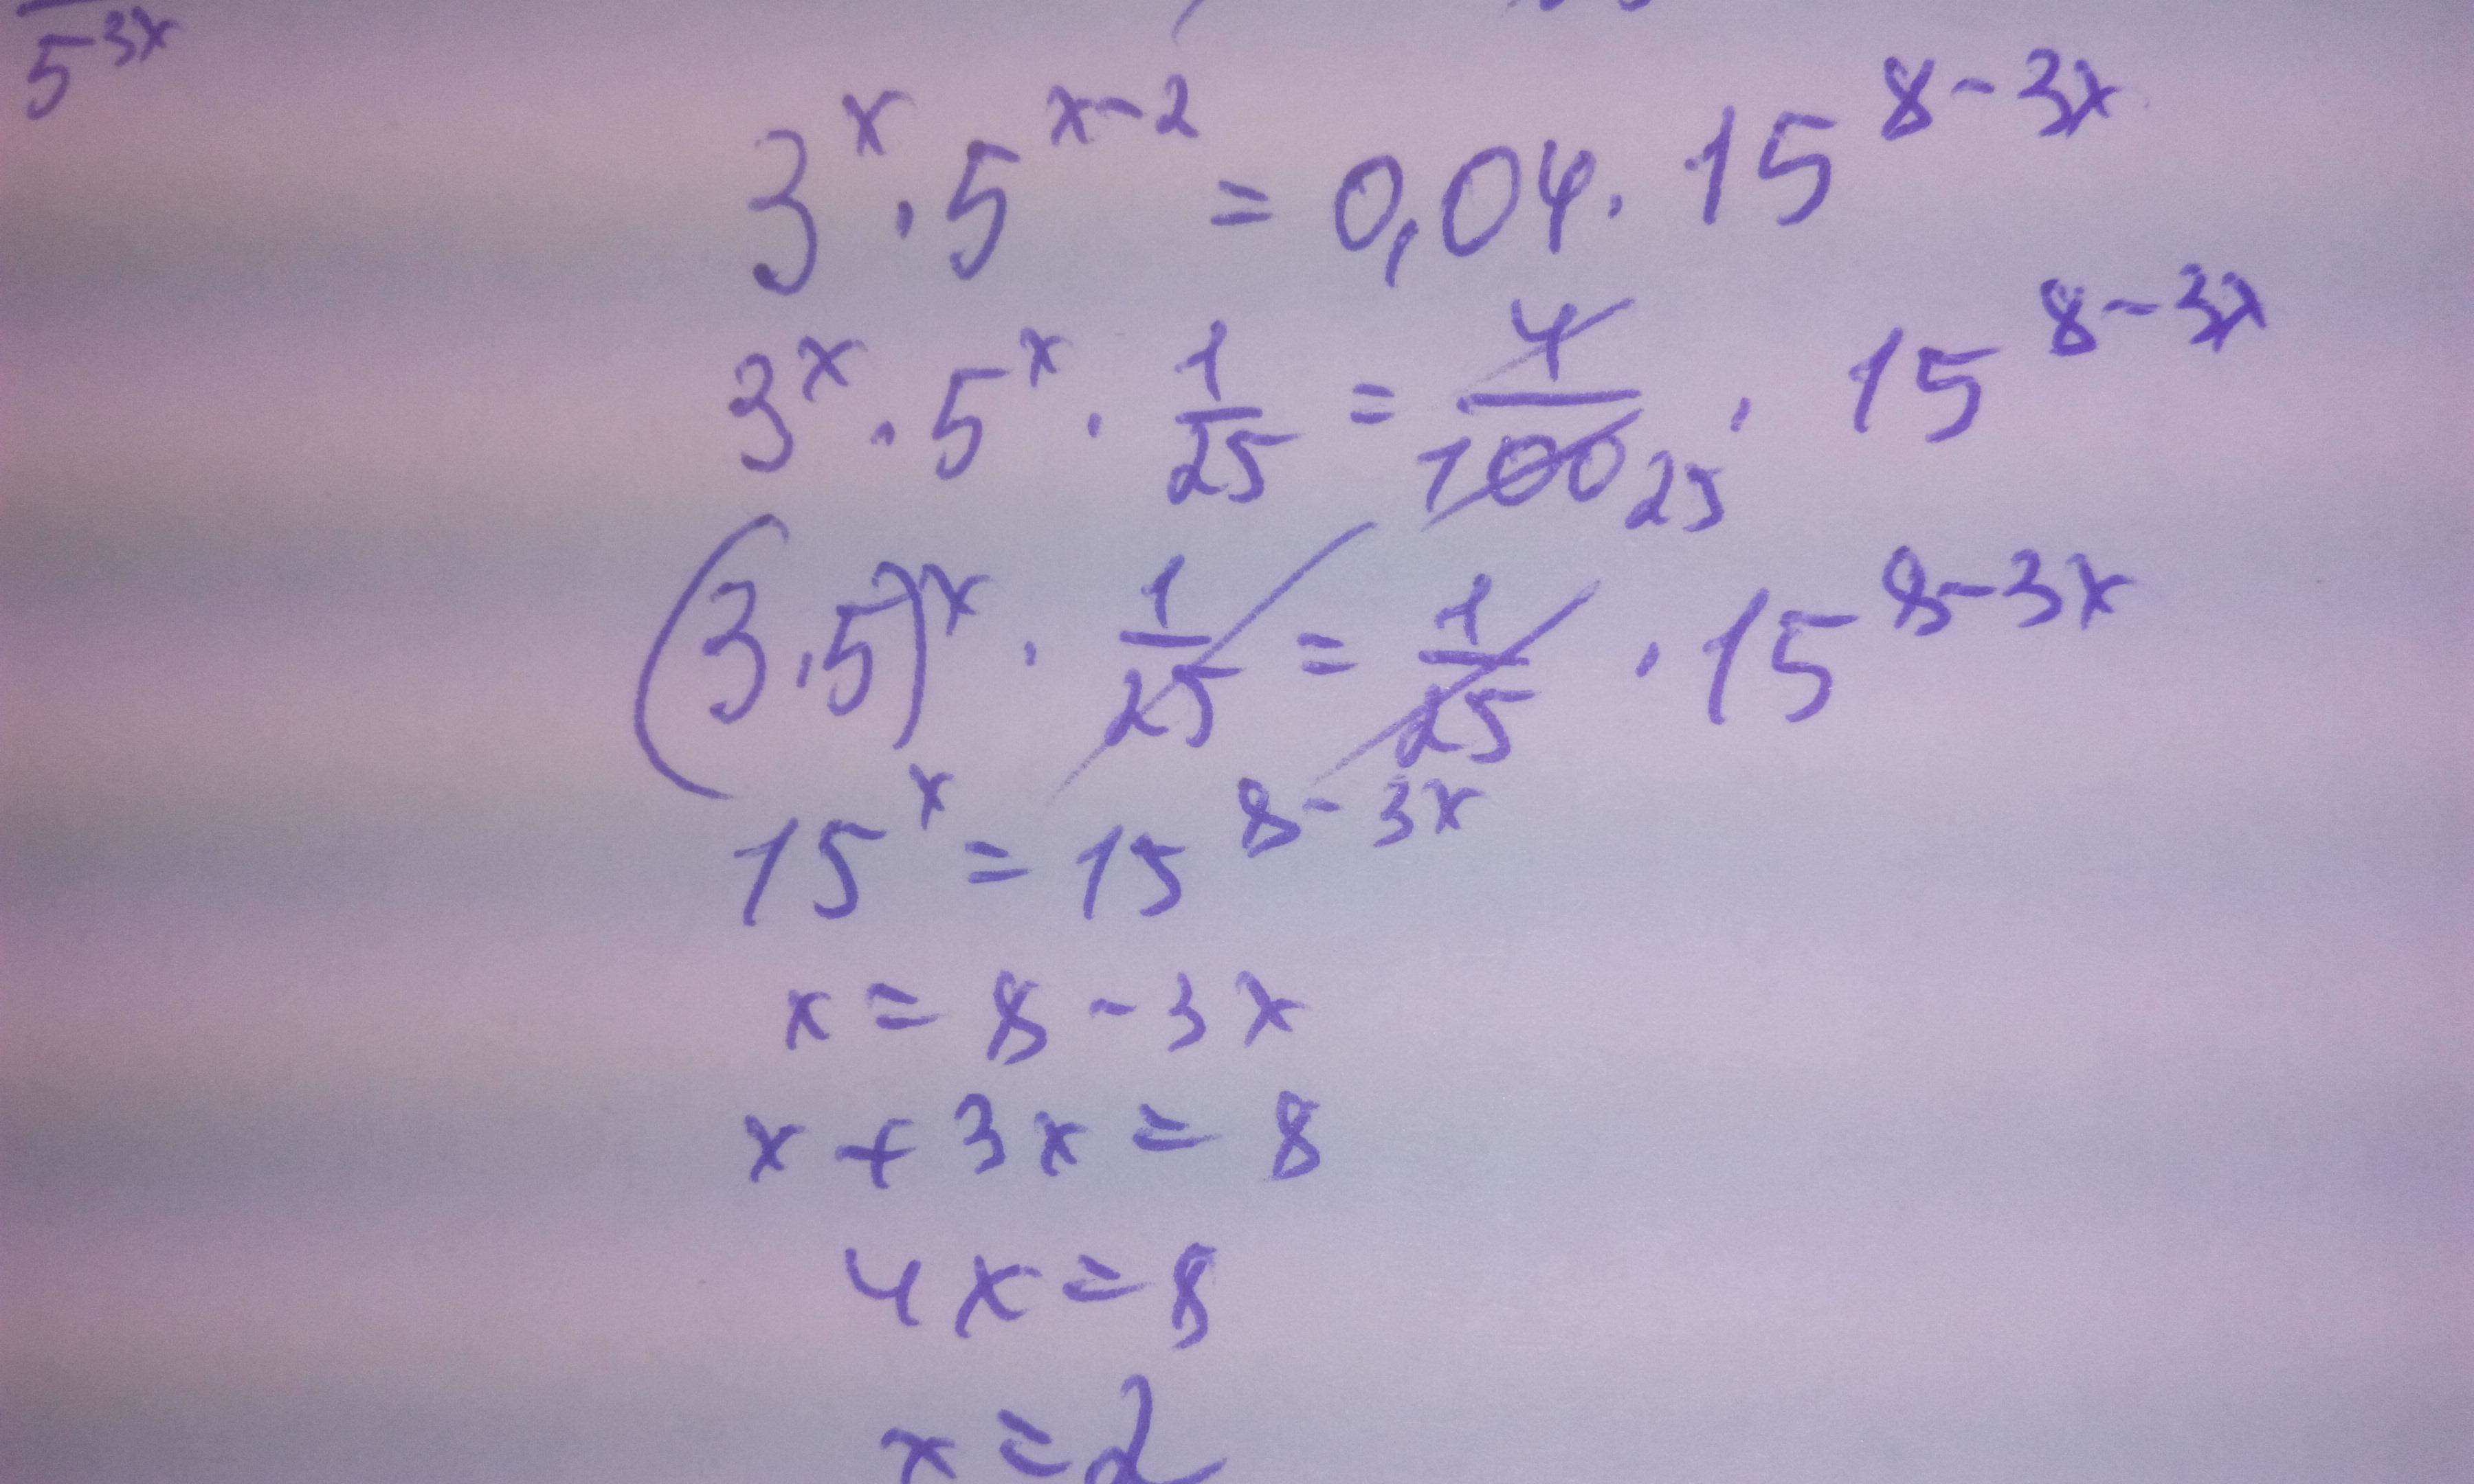 5^{3x}
3^x · 5^{x-2} = 0,04 · 15^{8-3x}
3^x · 5^x · \frac{1}{25} = \frac{4}{100} 25 · 15^{8-3x}
(3·5)^x · \frac{1}{25} = \frac{1}{25} · 15^{8-3x}
15^x = 15^{8-3x}
x = 8 - 3x
x + 3x = 8
4x = 8
x = 2